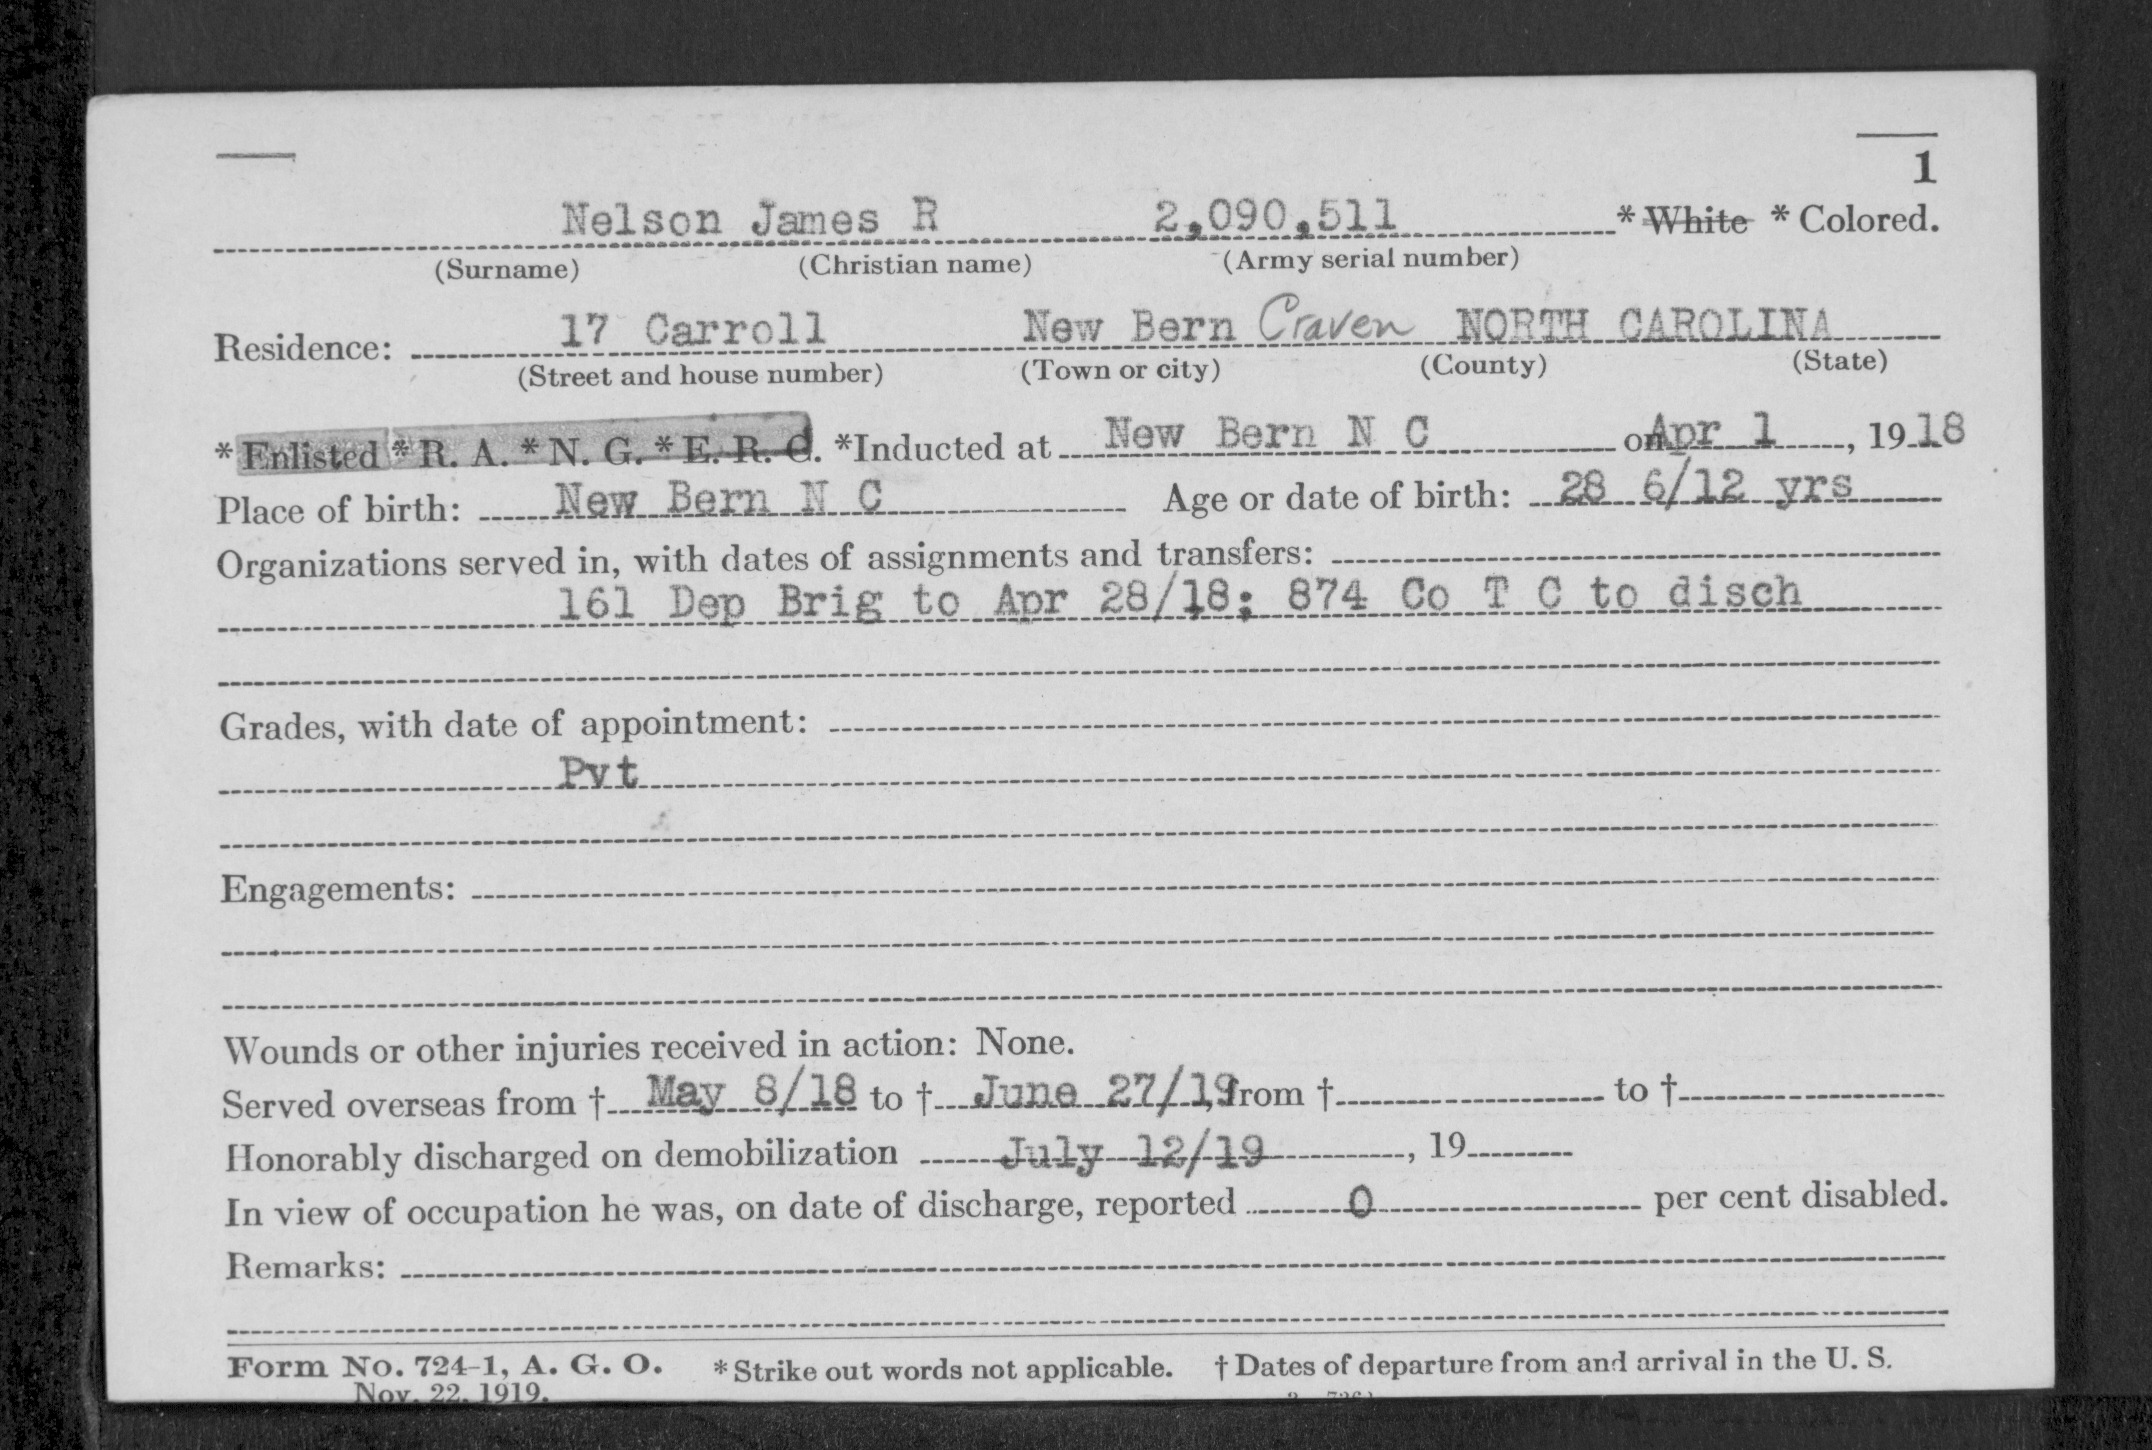 1
Nelson James R 2,090,511 * White * Colored.
(Surname) (Christian name) (Army serial number)
Residence: 17 Carroll New Bern Craven NORTH CAROLINA
(Street and house number) (Town or city) (County) (State)
* Enlisted * R. A. * N. G. * E. R. C. *Inducted at New Bern N C on Apr 1, 1918
Place of birth: New Bern N C Age or date of birth: 28 6/12 yrs
Organizations served in, with dates of assignments and transfers:
161 Dep Brig to Apr 28/18; 874 Co T C to disch
Grades, with date of appointment:
Pvt
Engagements:
Wounds or other injuries received in action: None.
Served overseas from † May 8/18 to † June 27/19, from † to †
Honorably discharged on demobilization July 12/19, 19
In view of occupation he was, on date of discharge, reported 0 per cent disabled.
Remarks:
Form No. 724-1, A. G. O. * Strike out words not applicable. † Dates of departure from and arrival in the U. S.
Nov. 22, 1919.